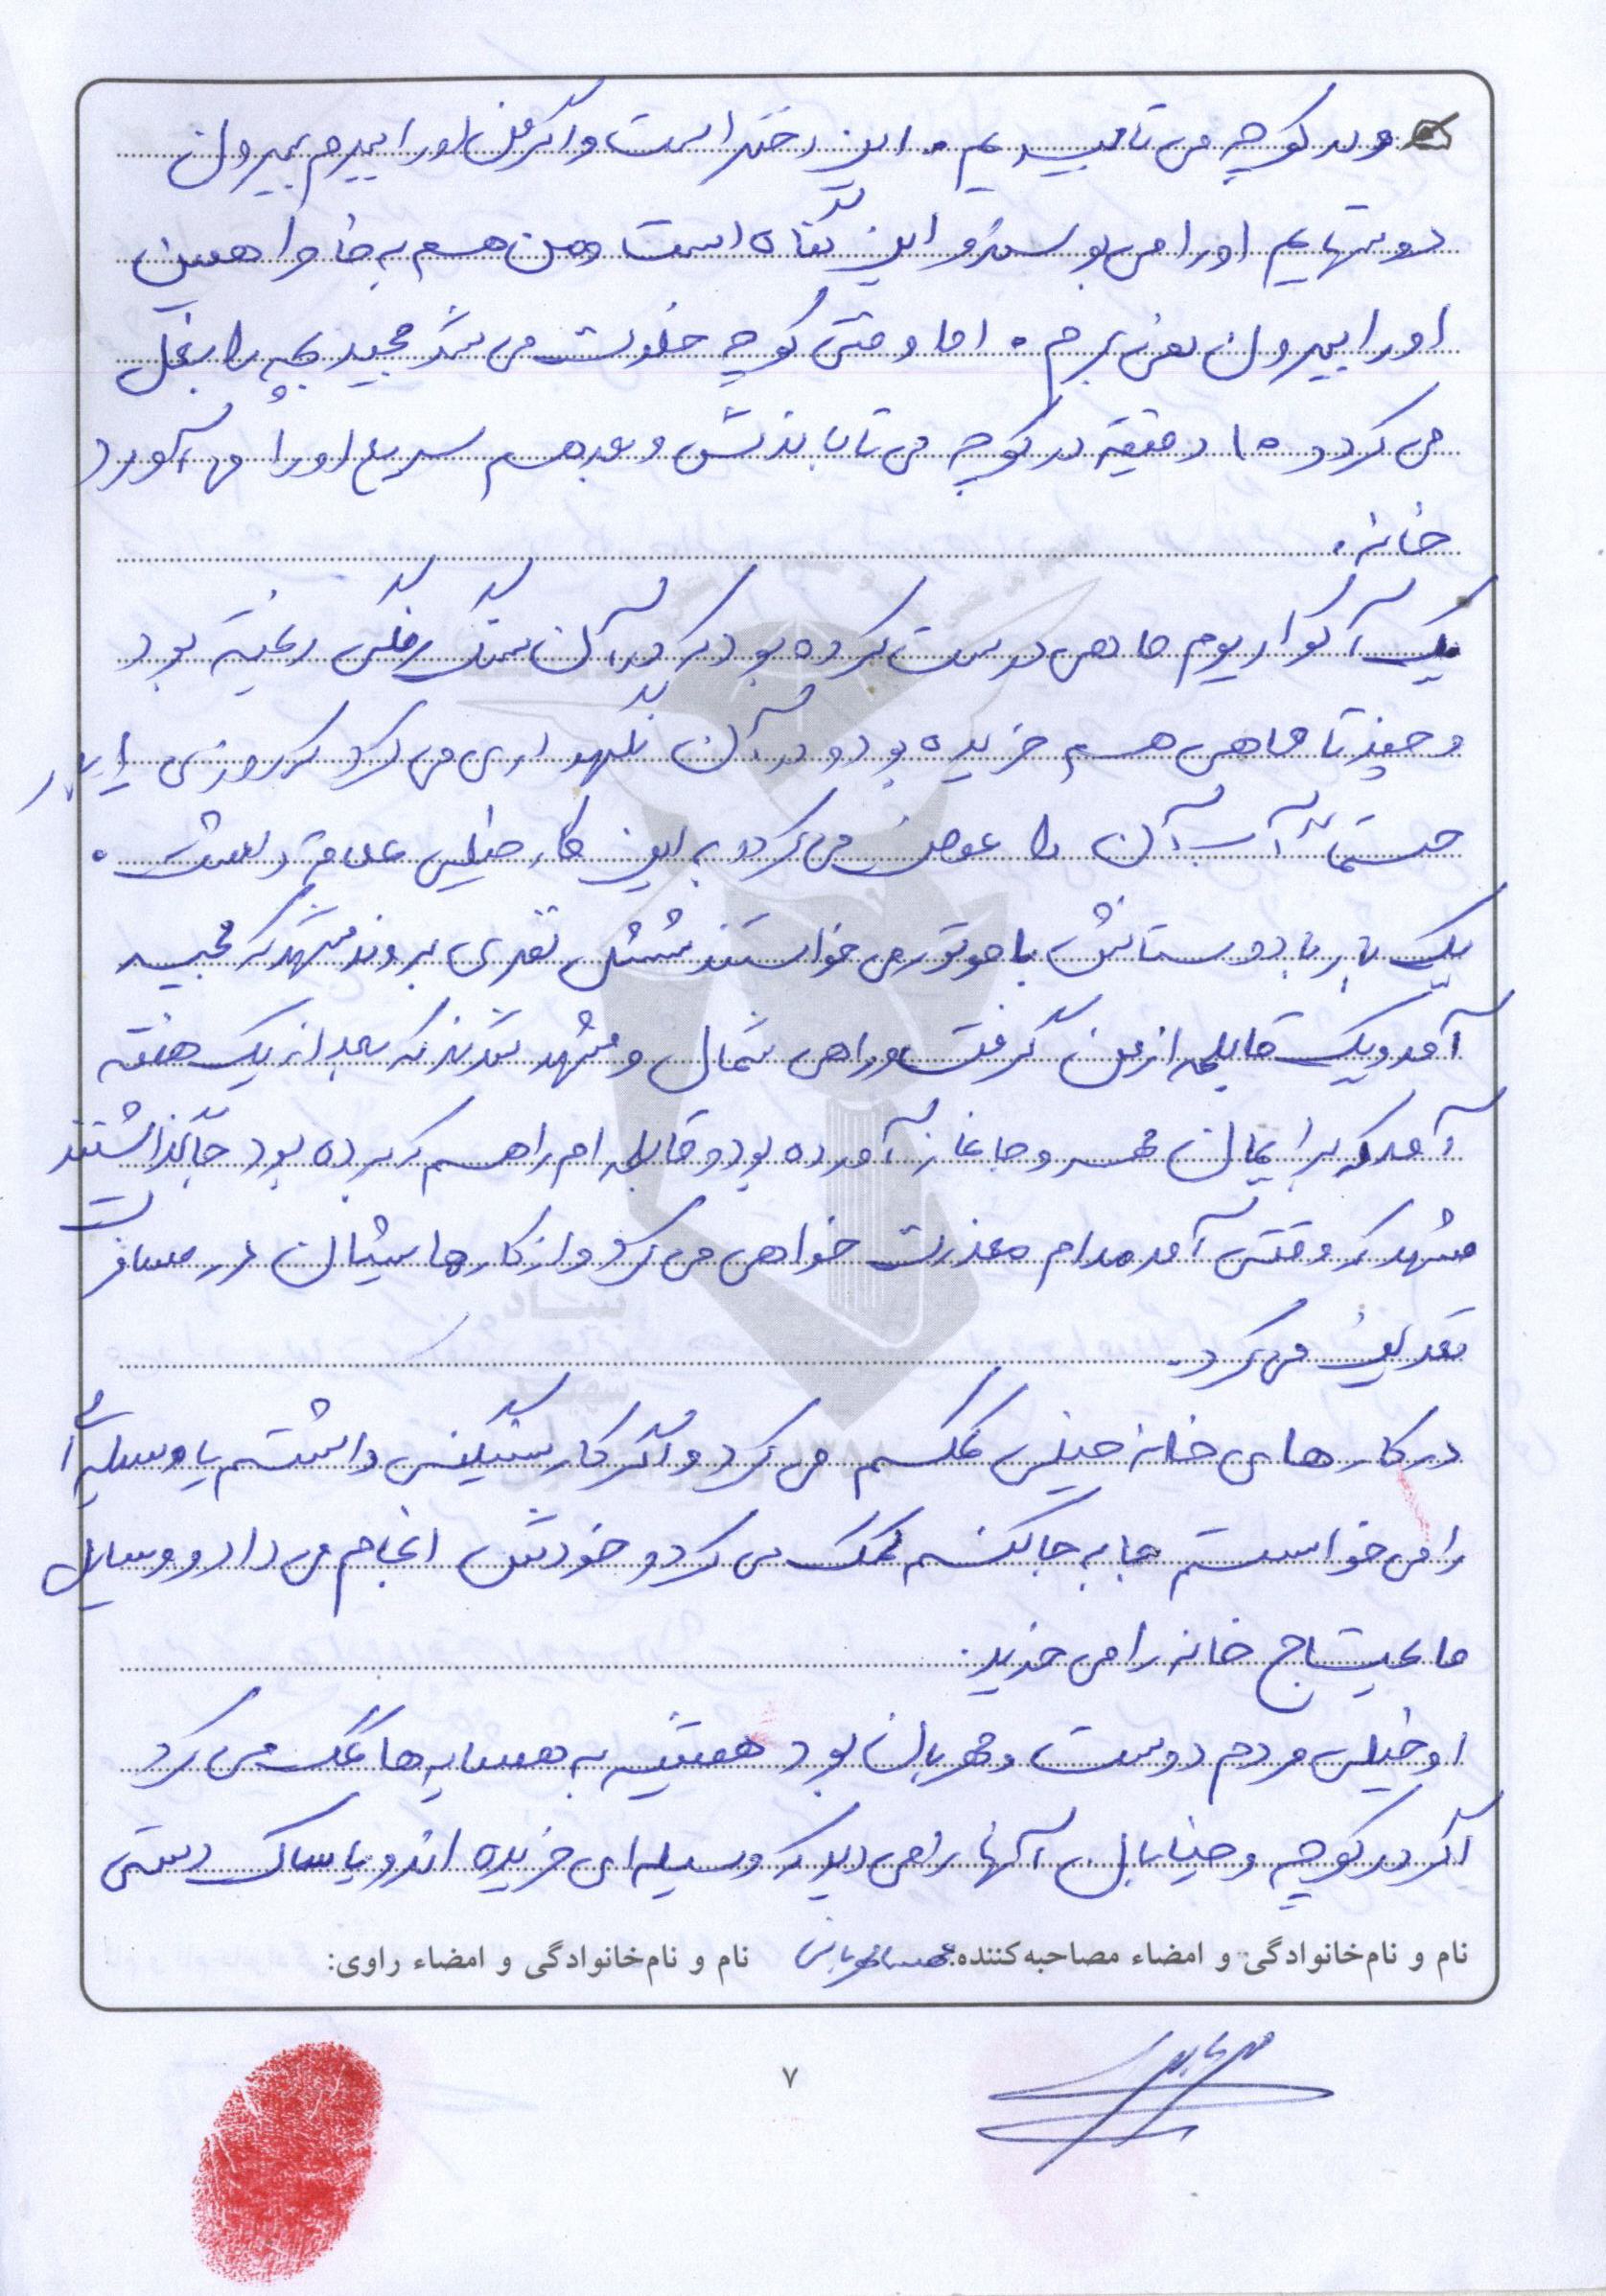 و در کوچه می تابیدیم. این دختر است و اگر من او را ببرم بیرون
دوستهایم او را می بوسند و این گناه است و من هم به خاطر همین
او را بیرون نمی برم. اما وقتی کوچه خلوت می شد مجید بچه را بغل
می کرد و ۱۰ دقیقه در کوچه می تاباندش و بعد هم سریع او را می آورد
خانه.
یک آکواریوم ماهی درست کرده بود که در آن سنگ رنگی ریخته بود
و چند تا ماهی هم خریده بود و در آن نگهداری می کرد که روزی یکبار
حتماً آب آن را عوض می کرد به این کار خیلی علاقه داشت.
یک بار با دوستانش با موتور می خواستند شش نفری بروند مشهد که مجید
آمد و یک قابلمه از من گرفت و راهی شمال و مشهد شدند که بعد از یک هفته
آمد که برایمان مهر و جانماز آورده بود و قابلمه ام را هم که برده بود جا گذاشتند
مشهد که وقتی آمد مدام معذرت خواهی می کرد و از کارهایشان در مسافرت
تعریف می کرد.
در کارهای خانه خیلی کمکم می کرد و اگر کار سنگینی داشتم یا وسیله ای
را می خواستم جا به جا کنم کمک می کرد و خودش انجام می داد و وسایل
مایحتاج خانه را می خرید.
او خیلی مردم دوست و مهربان بود همیشه به همسایه ها کمک می کرد
اگر در کوچه و خیابان آنها را می دید که وسیله ای خریده اند و یا ساک دستی
نام و نام‌خانوادگی و امضاء مصاحبه‌کننده: نام و نام‌خانوادگی و امضاء راوی:
۷